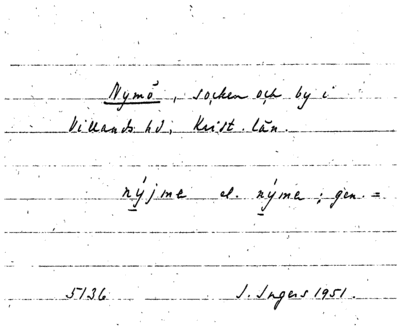 Nymö, socken och by i
Villands hd, Krist. län.
nýjme el. nýme; gen. =
5136 I. Ingers 1951.